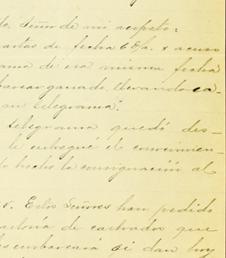 de. Señor de mi respeto:
artas de fecha 6 8/a. y acuso
ama de esa misma fecha
barcar ganado, llevando ca-
an telegrama".
telegrama quedó des-
le entregue el conocimien-
do hecho la consignación al
Estos Señores han pedido
de cachados que
embarcará si dan hoy